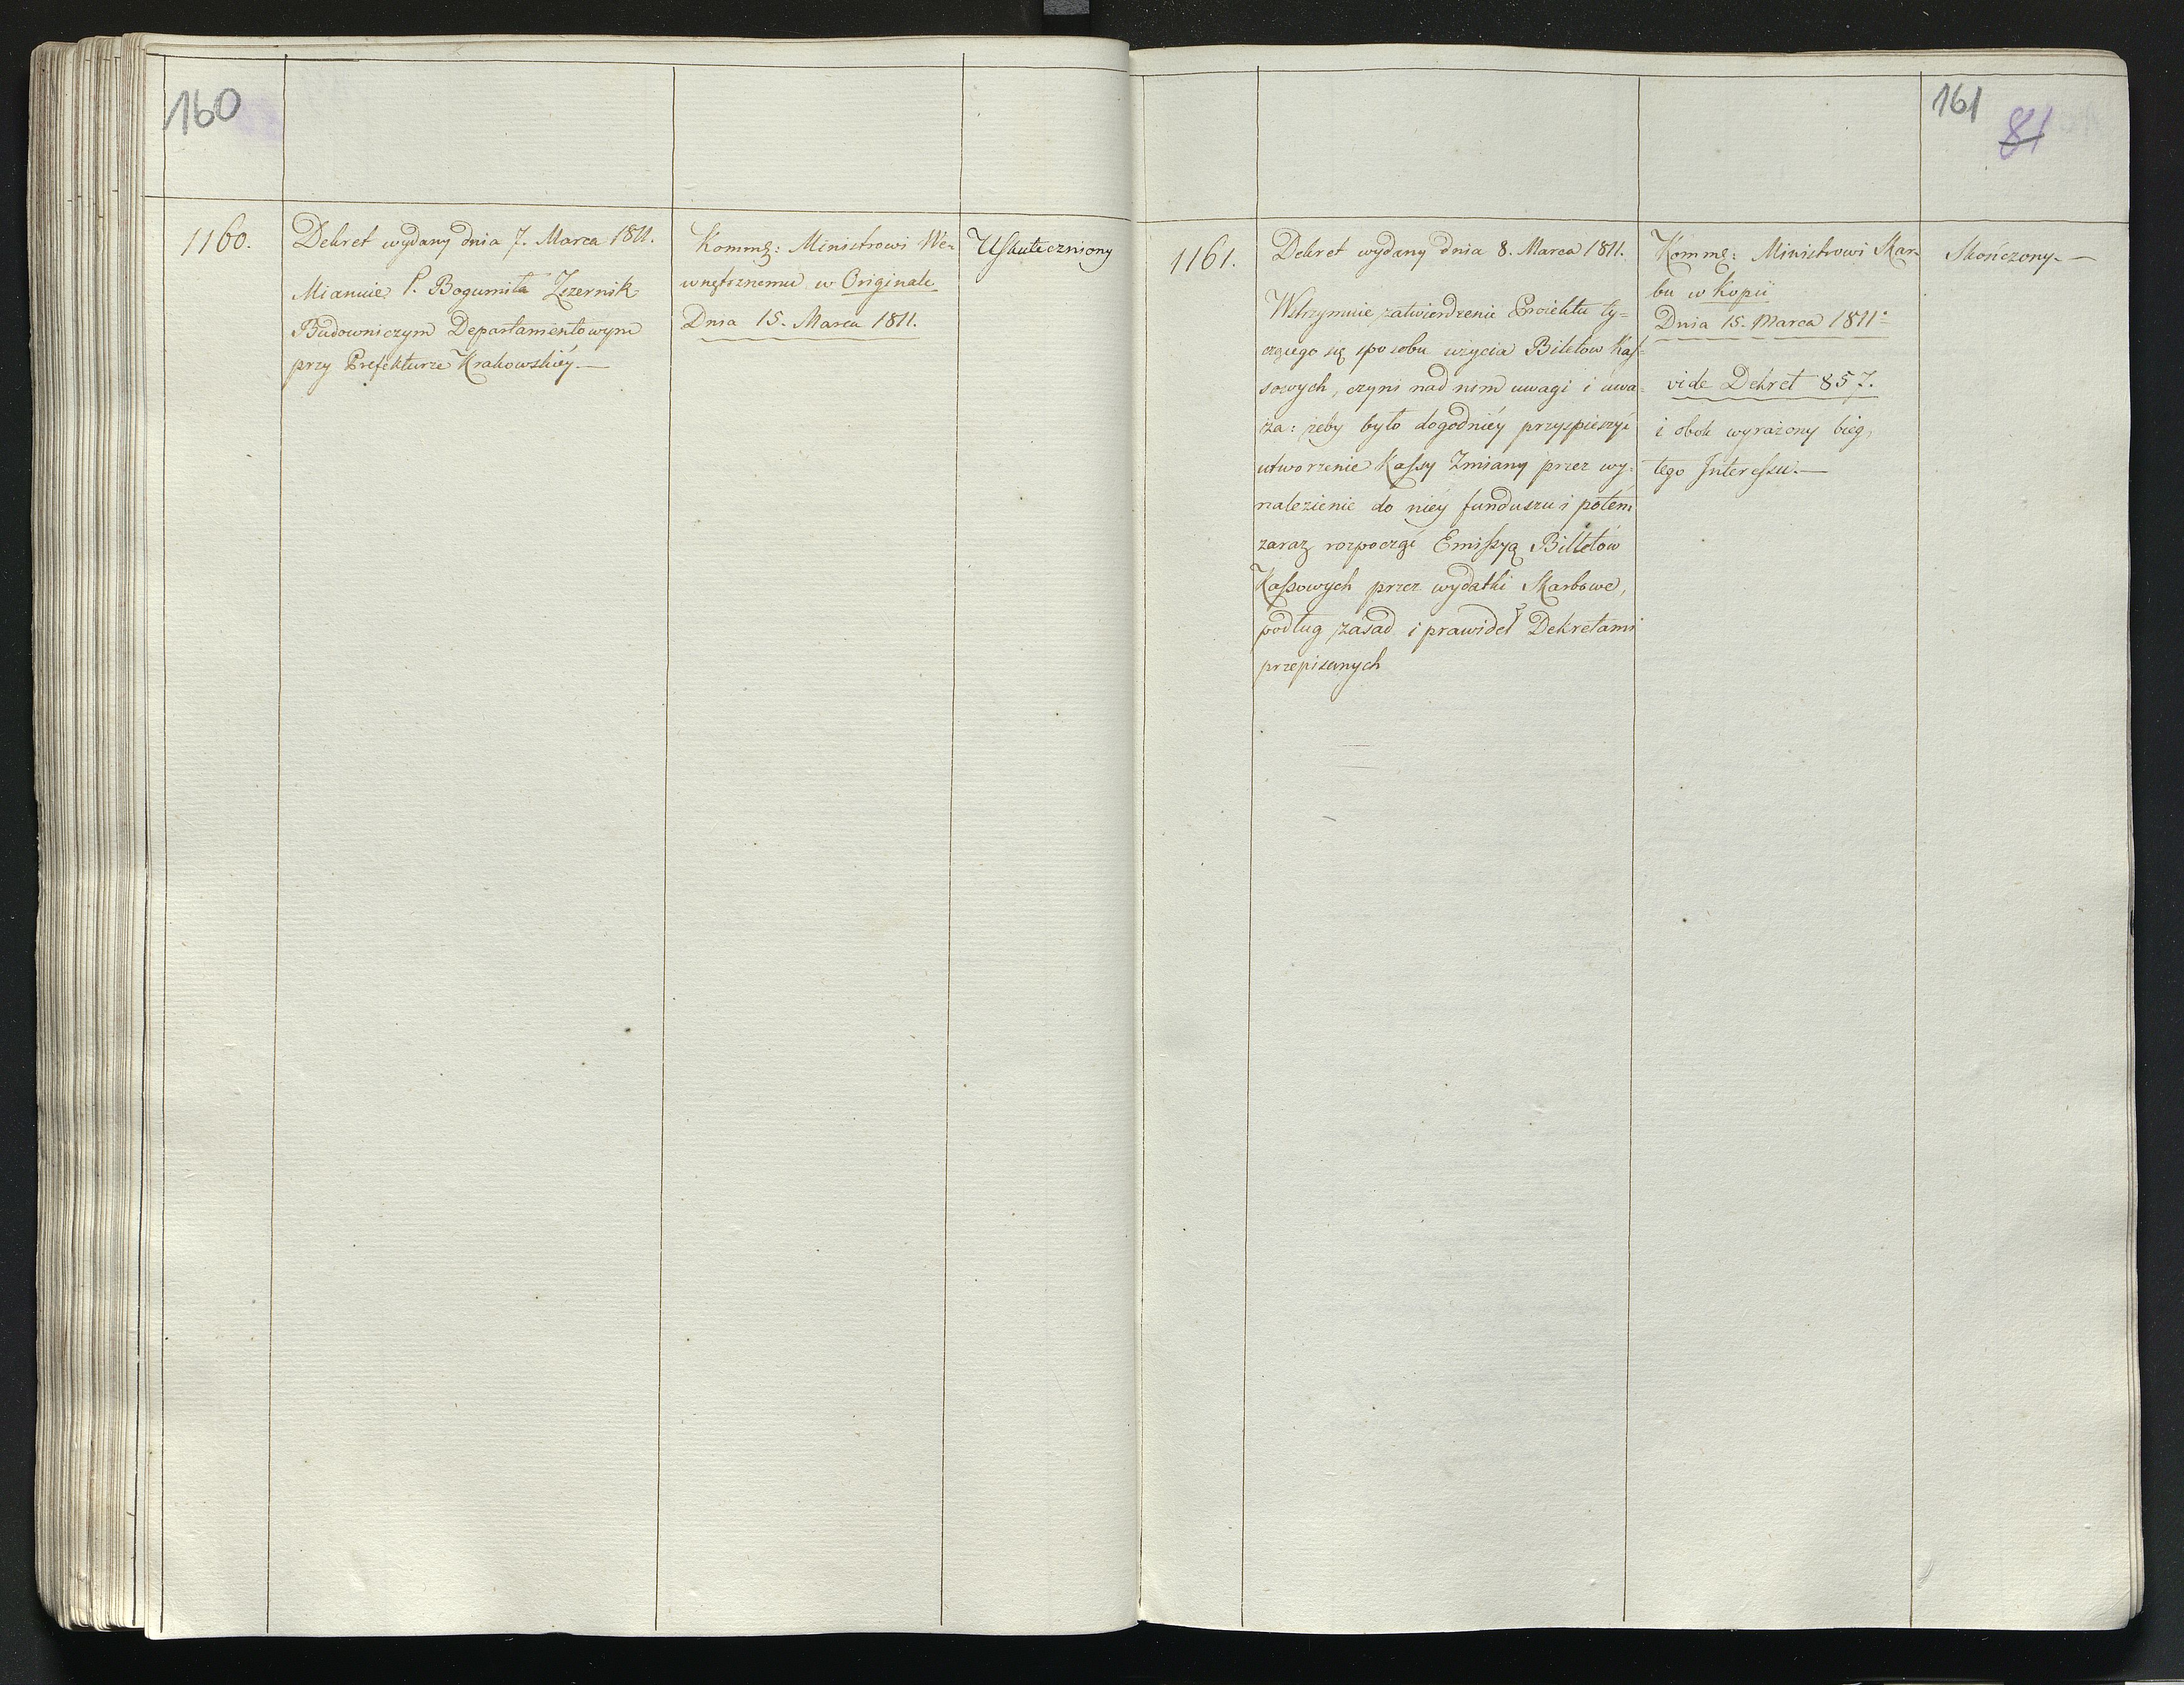 160
1160.
Dekret wydany dnia 7. Marca 1811.
Mianuie P. Bogumiła Zzernik
Budowniczym Departamentowym
przy Prefekturze Krakowskiéy.—
Kommę: Ministrowi We-
wnętrznemu w Originale
Dnia 15. Marca 1811.
Uskuteczniony
161
81
1161.
Dekret wydany dnia 8. Marca 1811.
Wstrzymuie zatwierdzenie Proiektu ty=
czącego się sposobu użycia Biletów Kas-
sowych, czyni nad nim uwagi i uwa-
ża: żeby było dogodniéy przyspieszyć
utworzenie Kassy Zmiany przez wy-
nalezienie do niéy funduszu i potém
zaraz rozpocząć Emissyą Billetów
Kassowych przez wydatki Skarbowe,
podług zasad i prawideł Dekretami
przepisanych
Kommę: Ministrowi Skar-
bu w Kopii
Dnia 15. Marca 1811.
vide Dekret 857.
i obok wyrażony bieg,
tego Interessu.—
Skończony.—